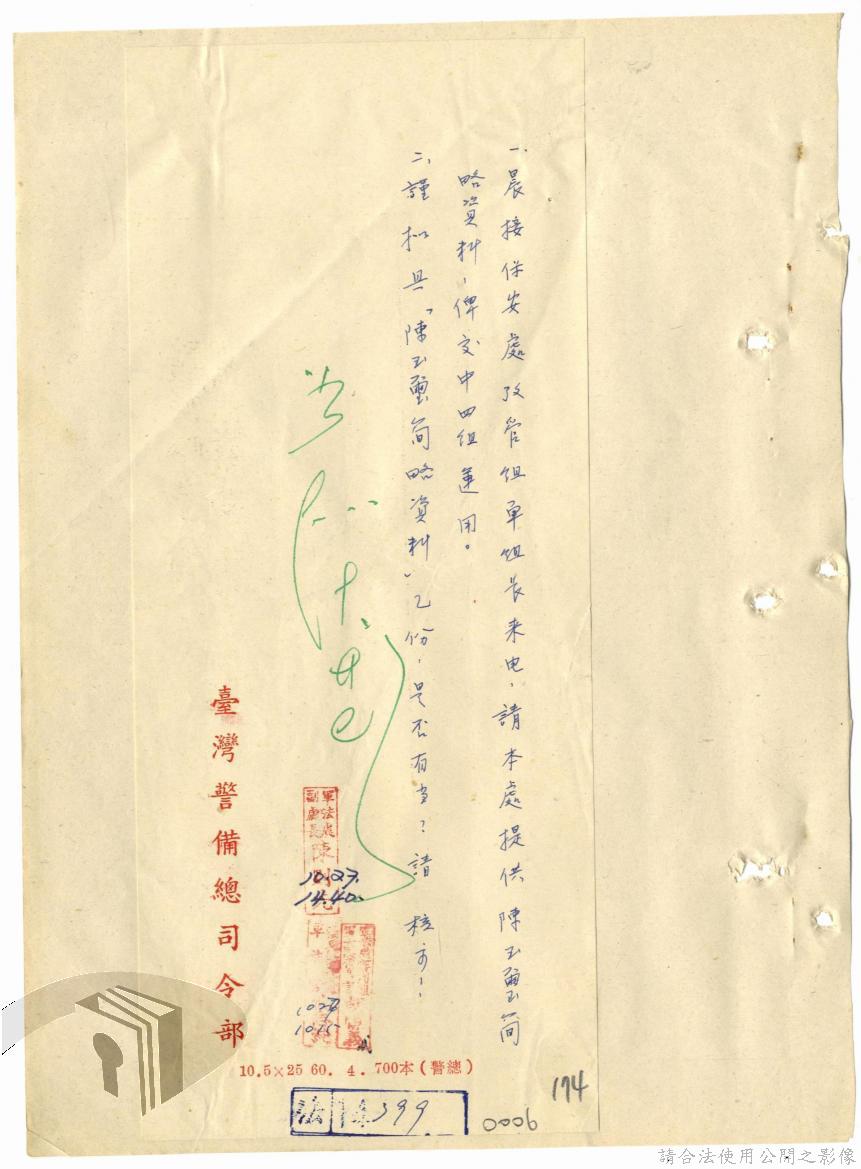 一、晨接保安處改管組單組長来电，請本處提供陳玉璽简
略資料，俾交中四組運用。
二、謹拟具「陳玉璽简略資料」乙份，是否有当？請　核示！
軍法處
副處長陳
10.27.
14.40.
10.27
10.15
臺灣警備總司令部
10.5×25 60. 4. 700本(警總)
法 399
0006
174
請合法使用公開之影像